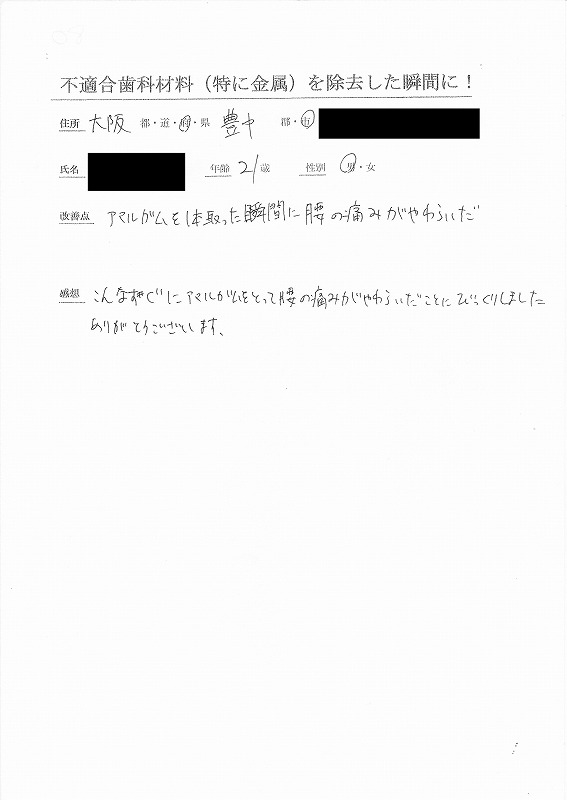 不適合歯科材料（特に金属）を除去した瞬間に！
住所 大阪 都・道・府・県 豊中 郡・市
氏名 年齢 21歳 性別 男・女
改善点 アマルガムを1本取った瞬間に腰の痛みがやわらいだ
感想 こんなすぐにアマルガムをとって腰の痛みがやわらいだことにびっくりしました
ありがとうございます、